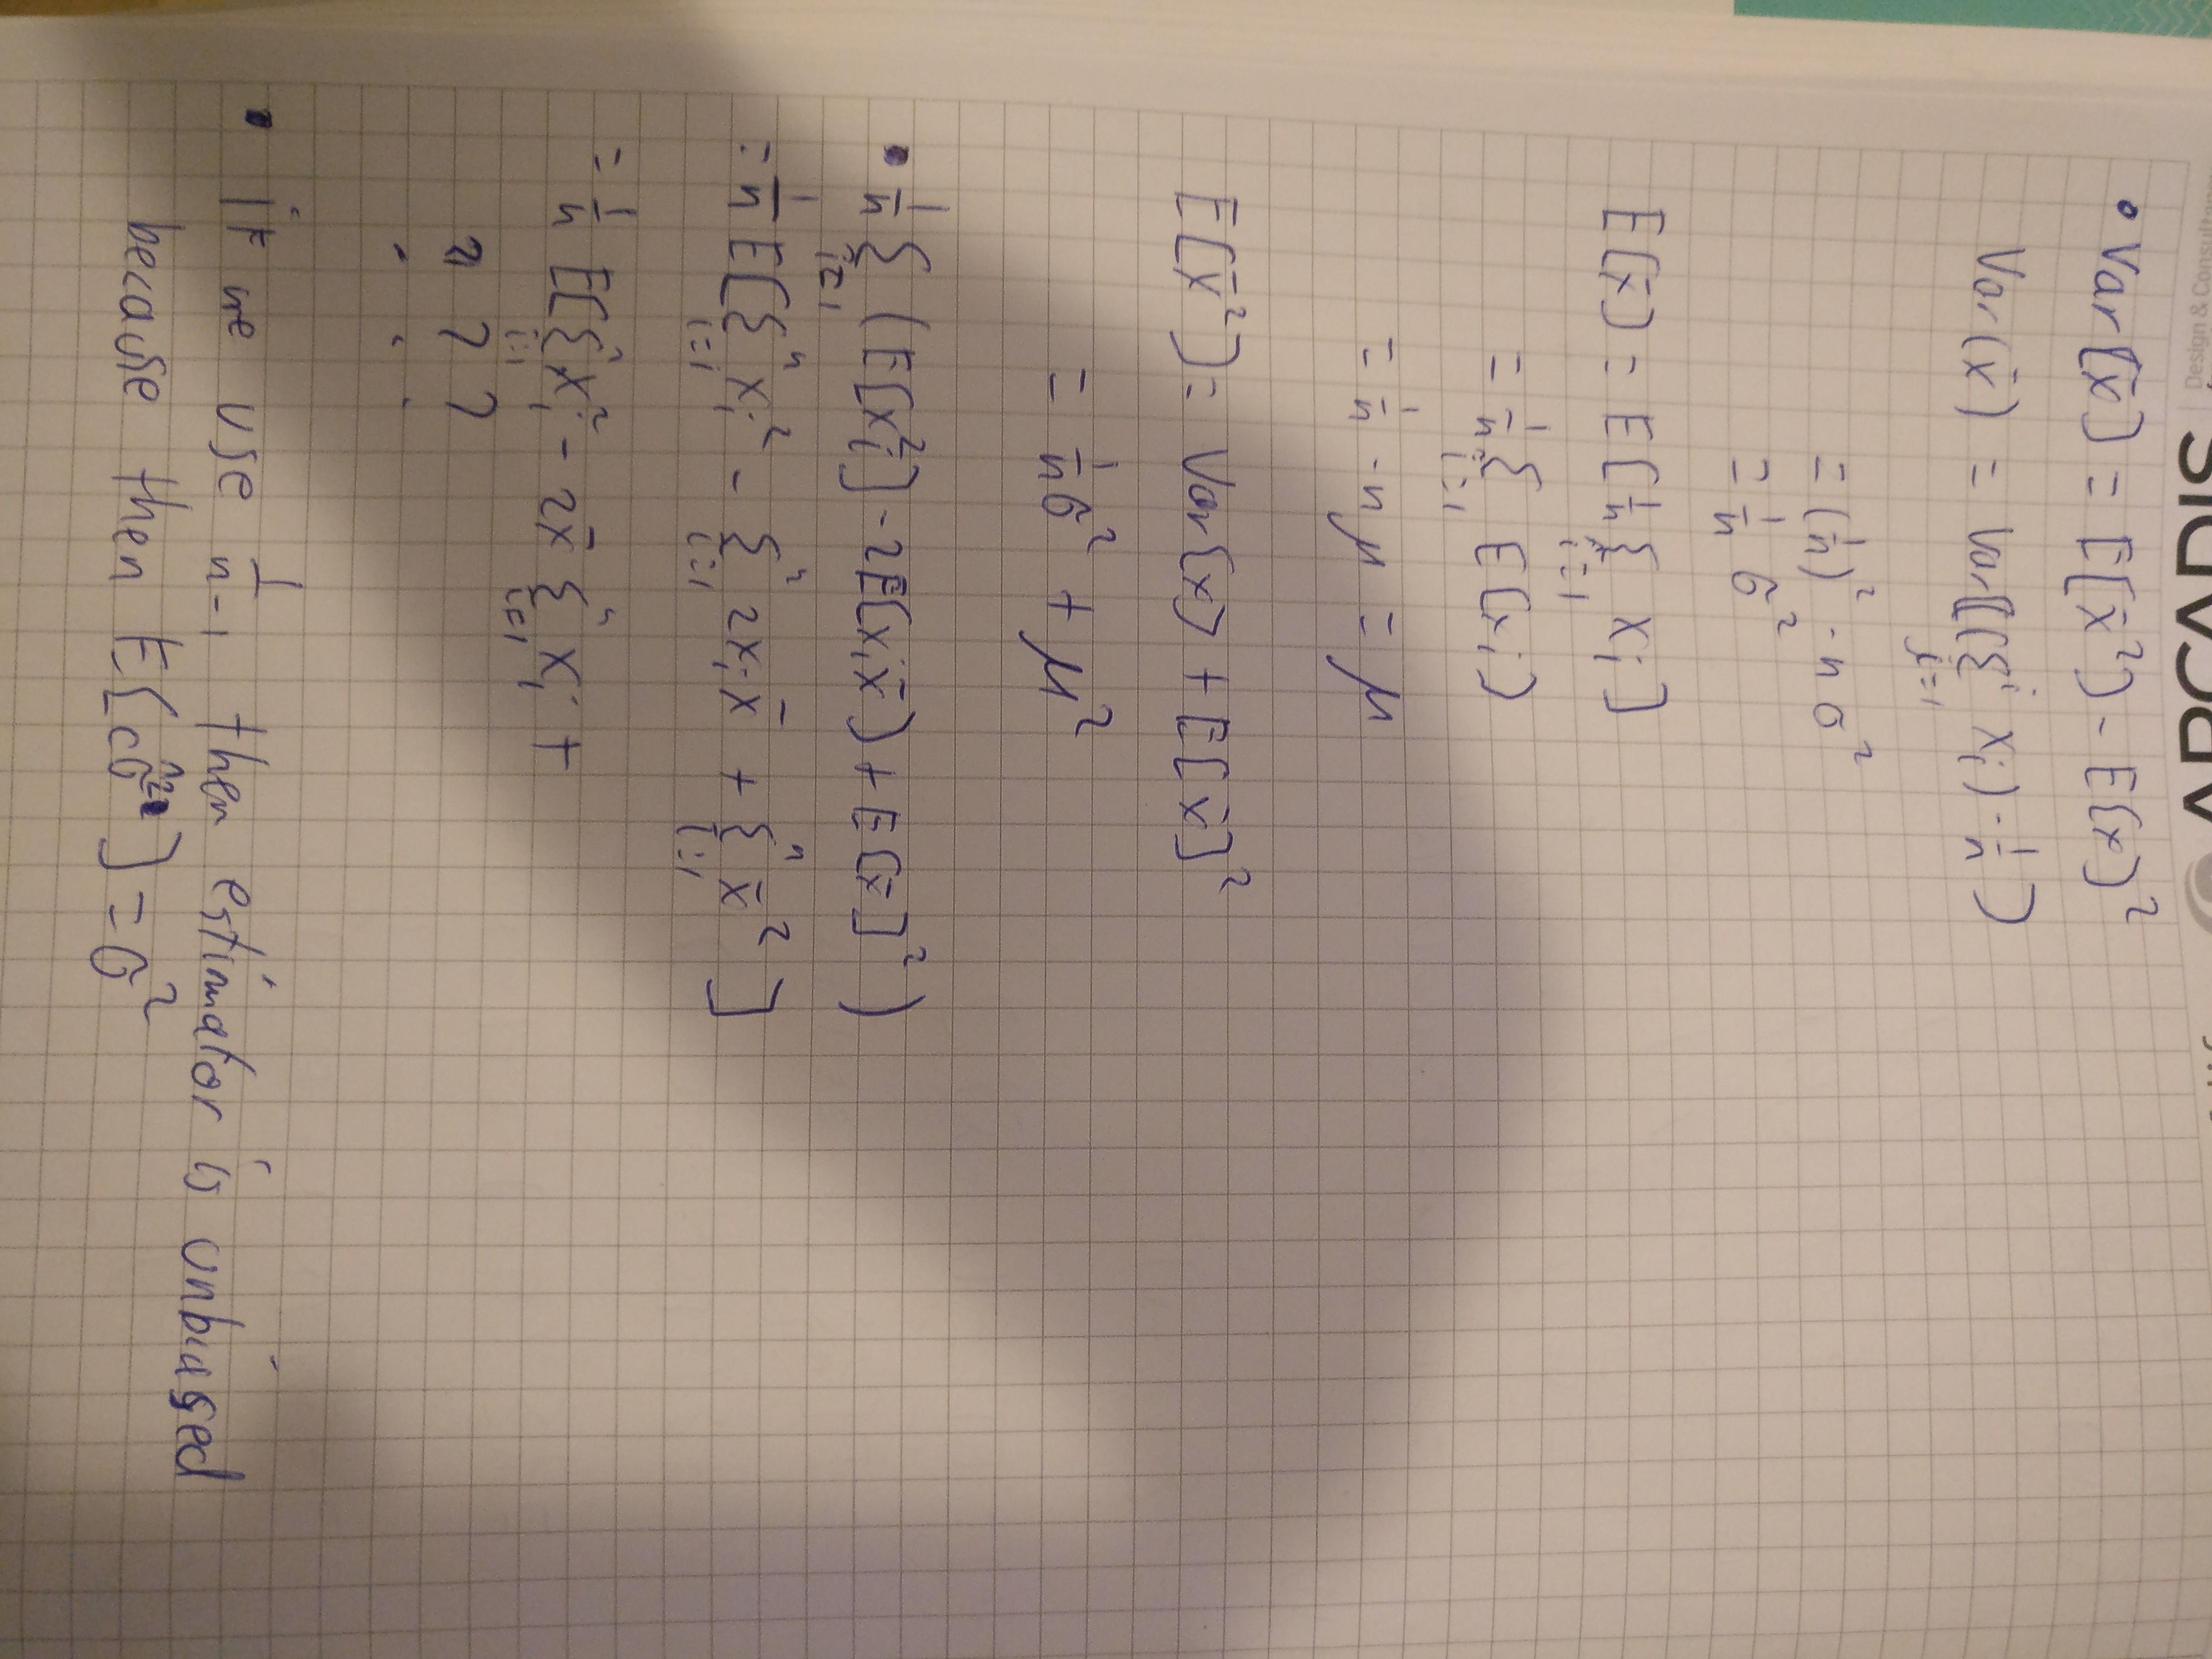 Design & Consultancy
ARCADIS
• Var[x̄] = E[x̄²] - E[x]²
Var(x̄) = Var[((Σⁱ_{i=1} xᵢ) · 1/n)
= (1/n)² · n σ²
= 1/n σ²
E[x̄] = E[1/n Σ_{i=1} xᵢ]
= 1/n Σ_{i=1} E[xᵢ]
= 1/n · n μ = μ
E[x̄²] = Var[x] + E[x̄]²
= 1/n σ² + μ²
• 1/n Σ_{i=1} (E[xᵢ²] - 2E[xᵢx̄] + E[x̄]²)
= 1/n E[Σⁿ_{i=1} xᵢ² - Σⁿ_{i=1} 2xᵢx̄ + Σⁿ_{i=1} x̄²]
= 1/n E[Σⁿ_{i=1} xᵢ² - 2x̄ Σⁿ_{i=1} xᵢ +
? ? ?
• if we use 1/n-1 then estimator is unbiased
because then E[cσ̂²] = σ²